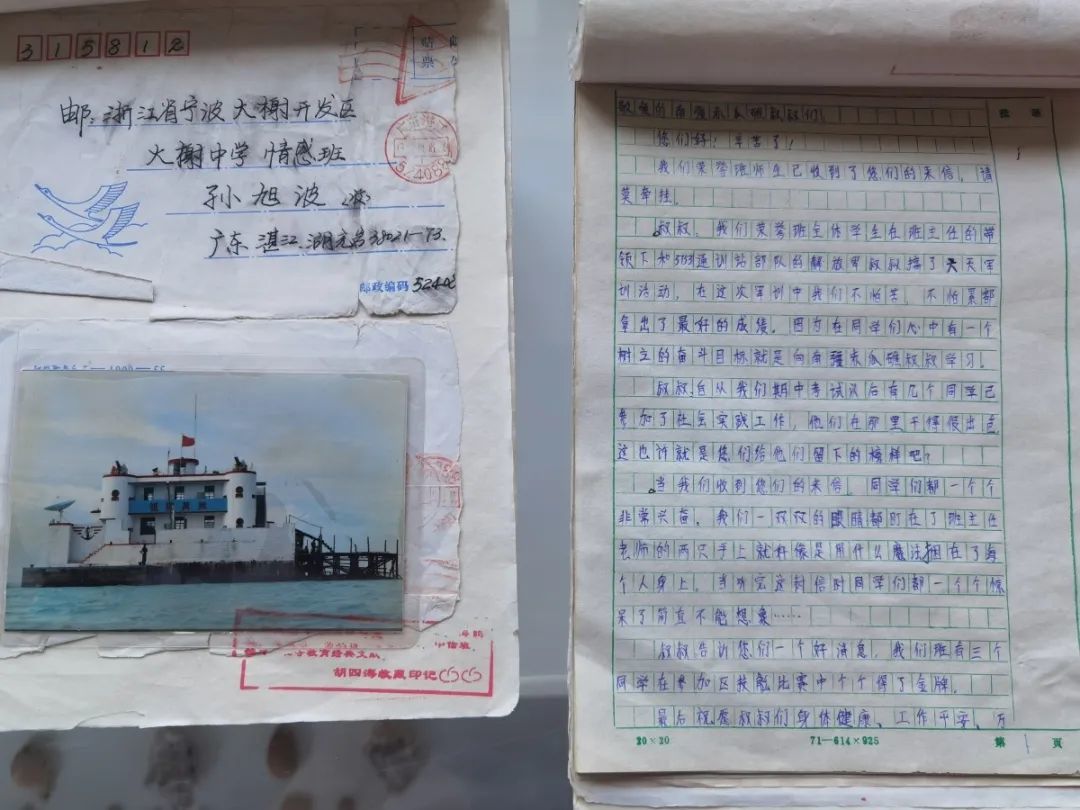 315812
邮:浙江省宁波大榭开发区
大榭中学 情感班
孙旭波 (收)
广东.湛江.湖光岩38021-73.
邮政编码 52408
贴
票
教育经典文献
胡四海收藏印记
敬爱的南疆赤瓜礁叔叔们!
批 语
您们好!辛苦了!
我们荣誉班师生已收到了您们的来信,请
莫牵挂。
叔叔,我们荣誉班全体学生在班主任的带
领下和553通训站部队的解放军叔叔搞了天天军
训活动,在这次军训中我们不怕苦,不怕累都
拿出了最好的成绩。因为在同学们心中有一个
树立的奋斗目标就是向南疆赤瓜礁叔叔学习!
叔叔自从我们期中考试以后有几个同学已
参加了社会实践工作,他们在那里干得很出色
这也许就是您们给他们留下的榜样吧?
当我们收到您们的来信,同学们都一个个
非常兴奋,我们一双双的眼睛都盯在了班主任
老师的两只手上就好像是用什么魔法捆在了每
个人身上,当听完这封信时同学们都一个个惊
呆了简直不能想象……
叔叔告诉您们一个好消息,我们班有三个
同学在参加区技能比赛中个个得了金牌。
最后祝愿叔叔们身体健康、工作平安、万
20×20
71—614×925
第 1 页